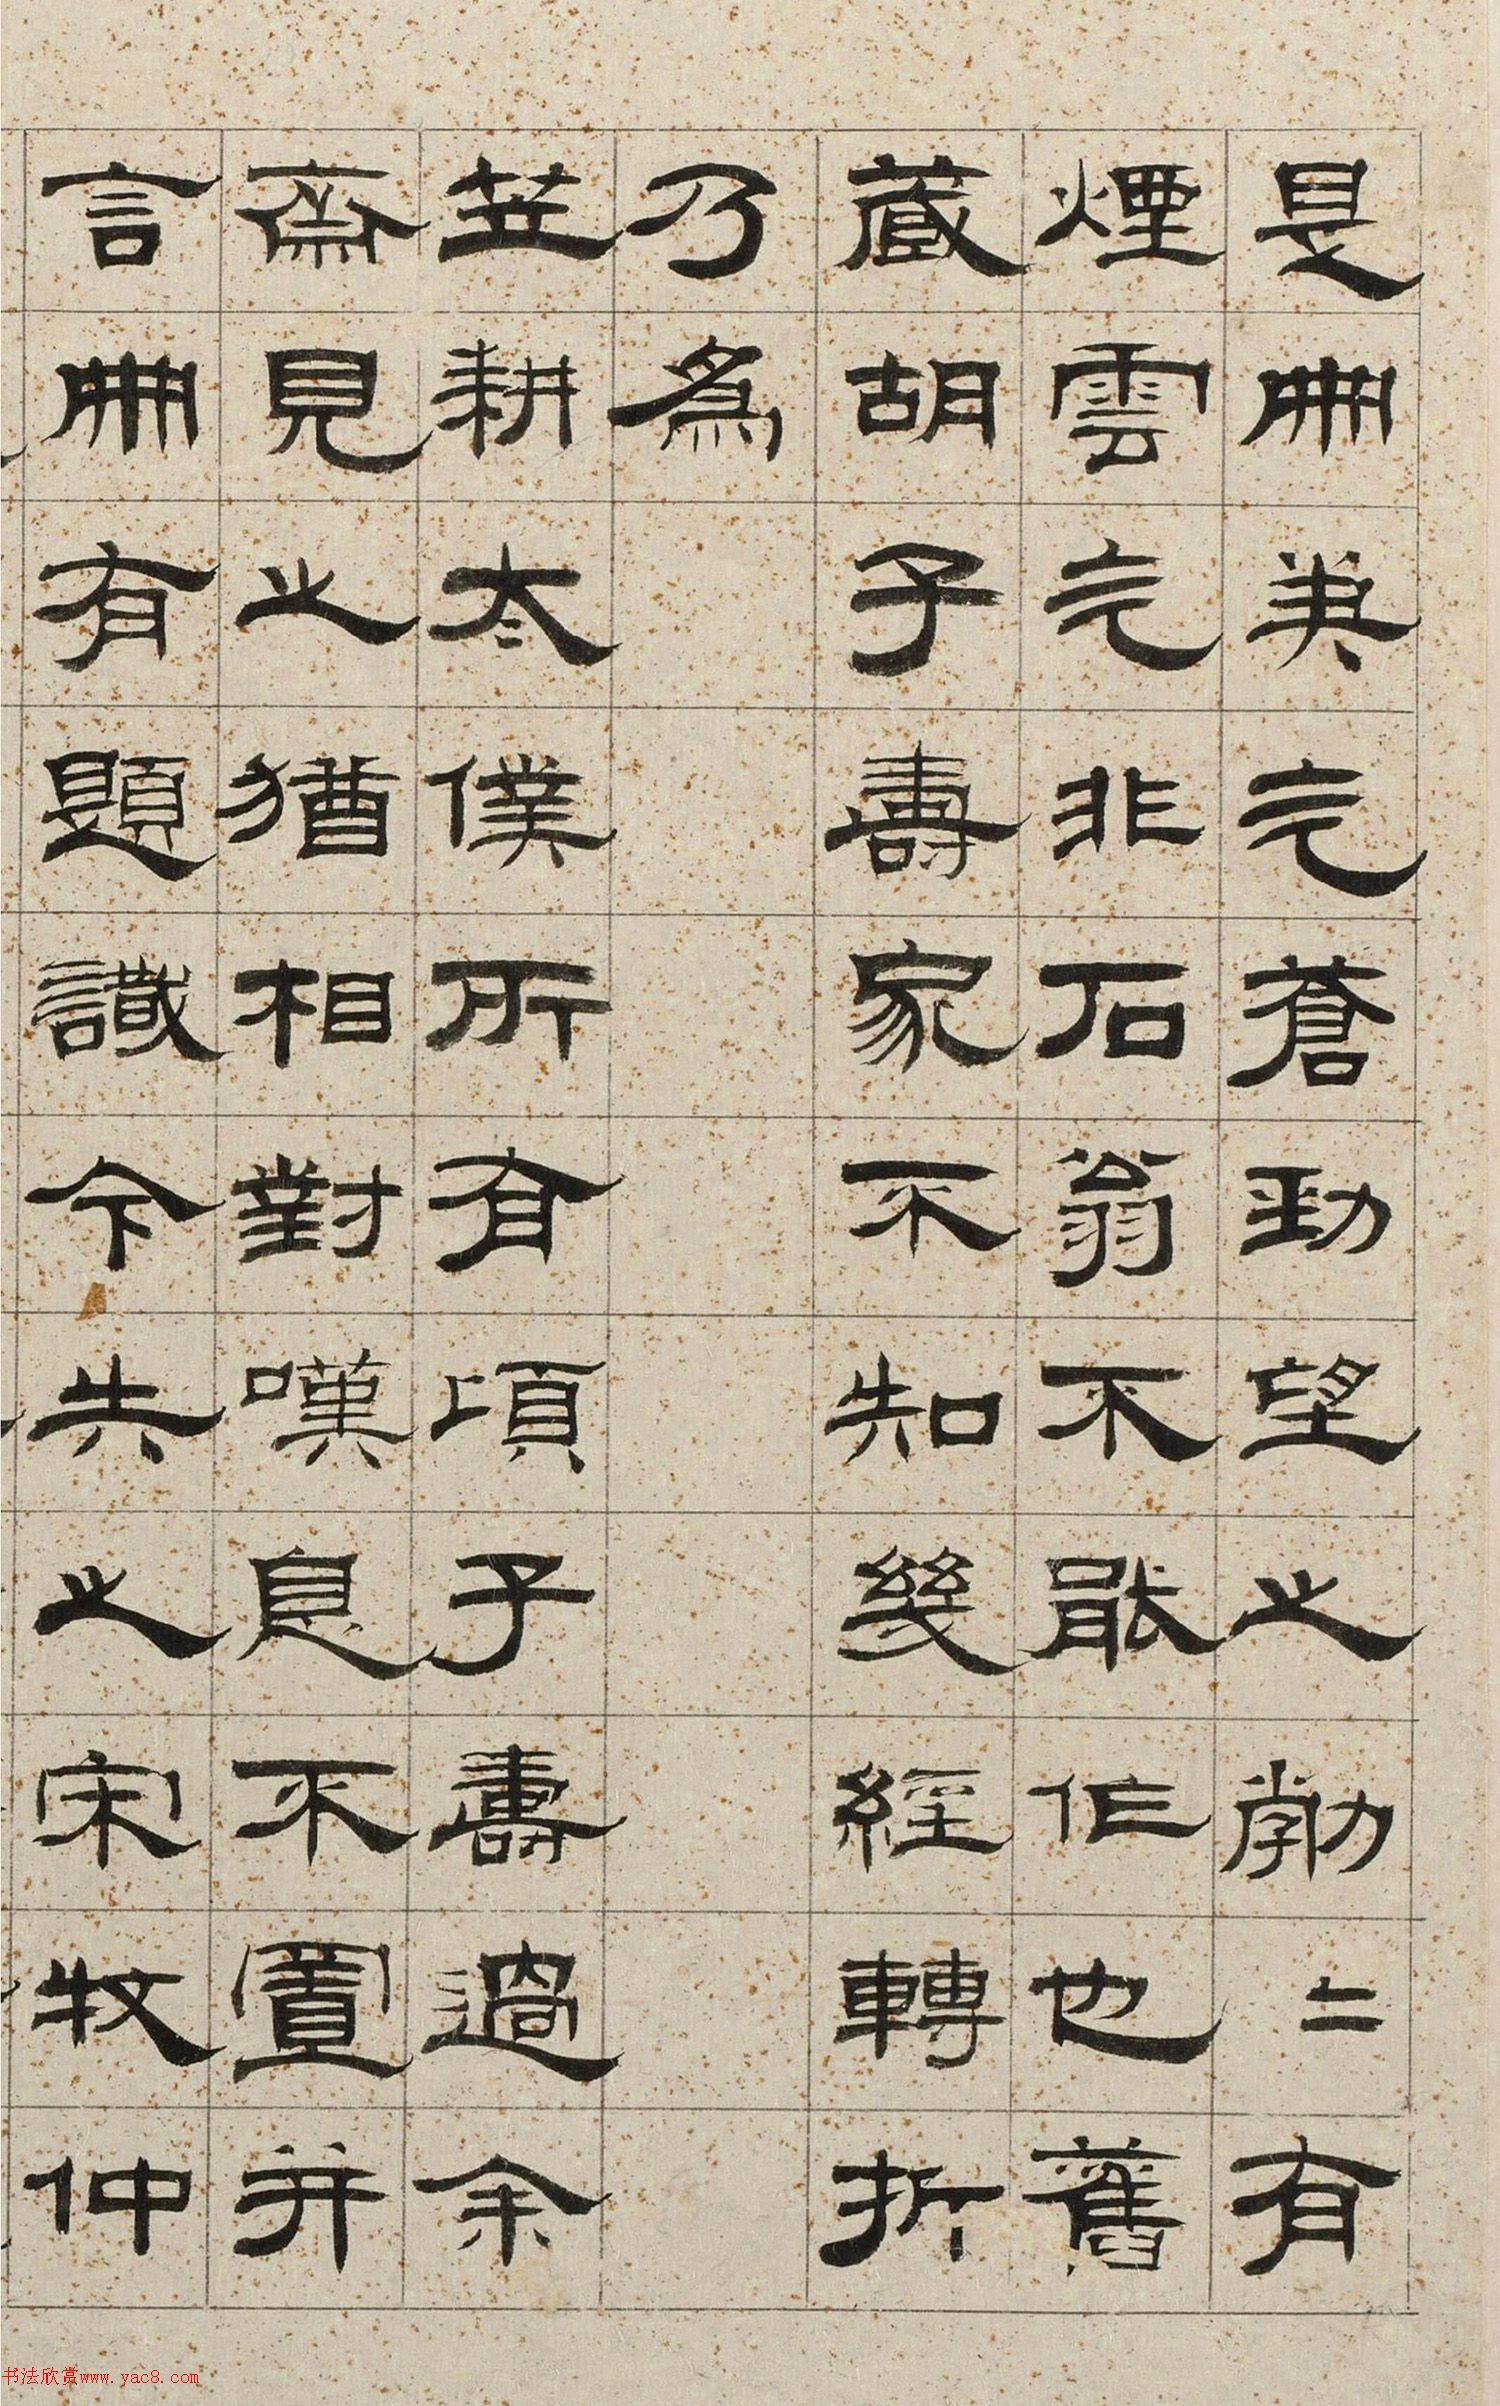 是冊筆气蒼勁望之勃〻有
煙雲气非石翁不能作也舊
藏胡子壽家不知幾經轉折
乃為
笠耕太僕所有頃子壽過余
齋見之猶相對嘆息不置并
言冊有題識今失之宋牧仲
书法欣赏www.yac8.com